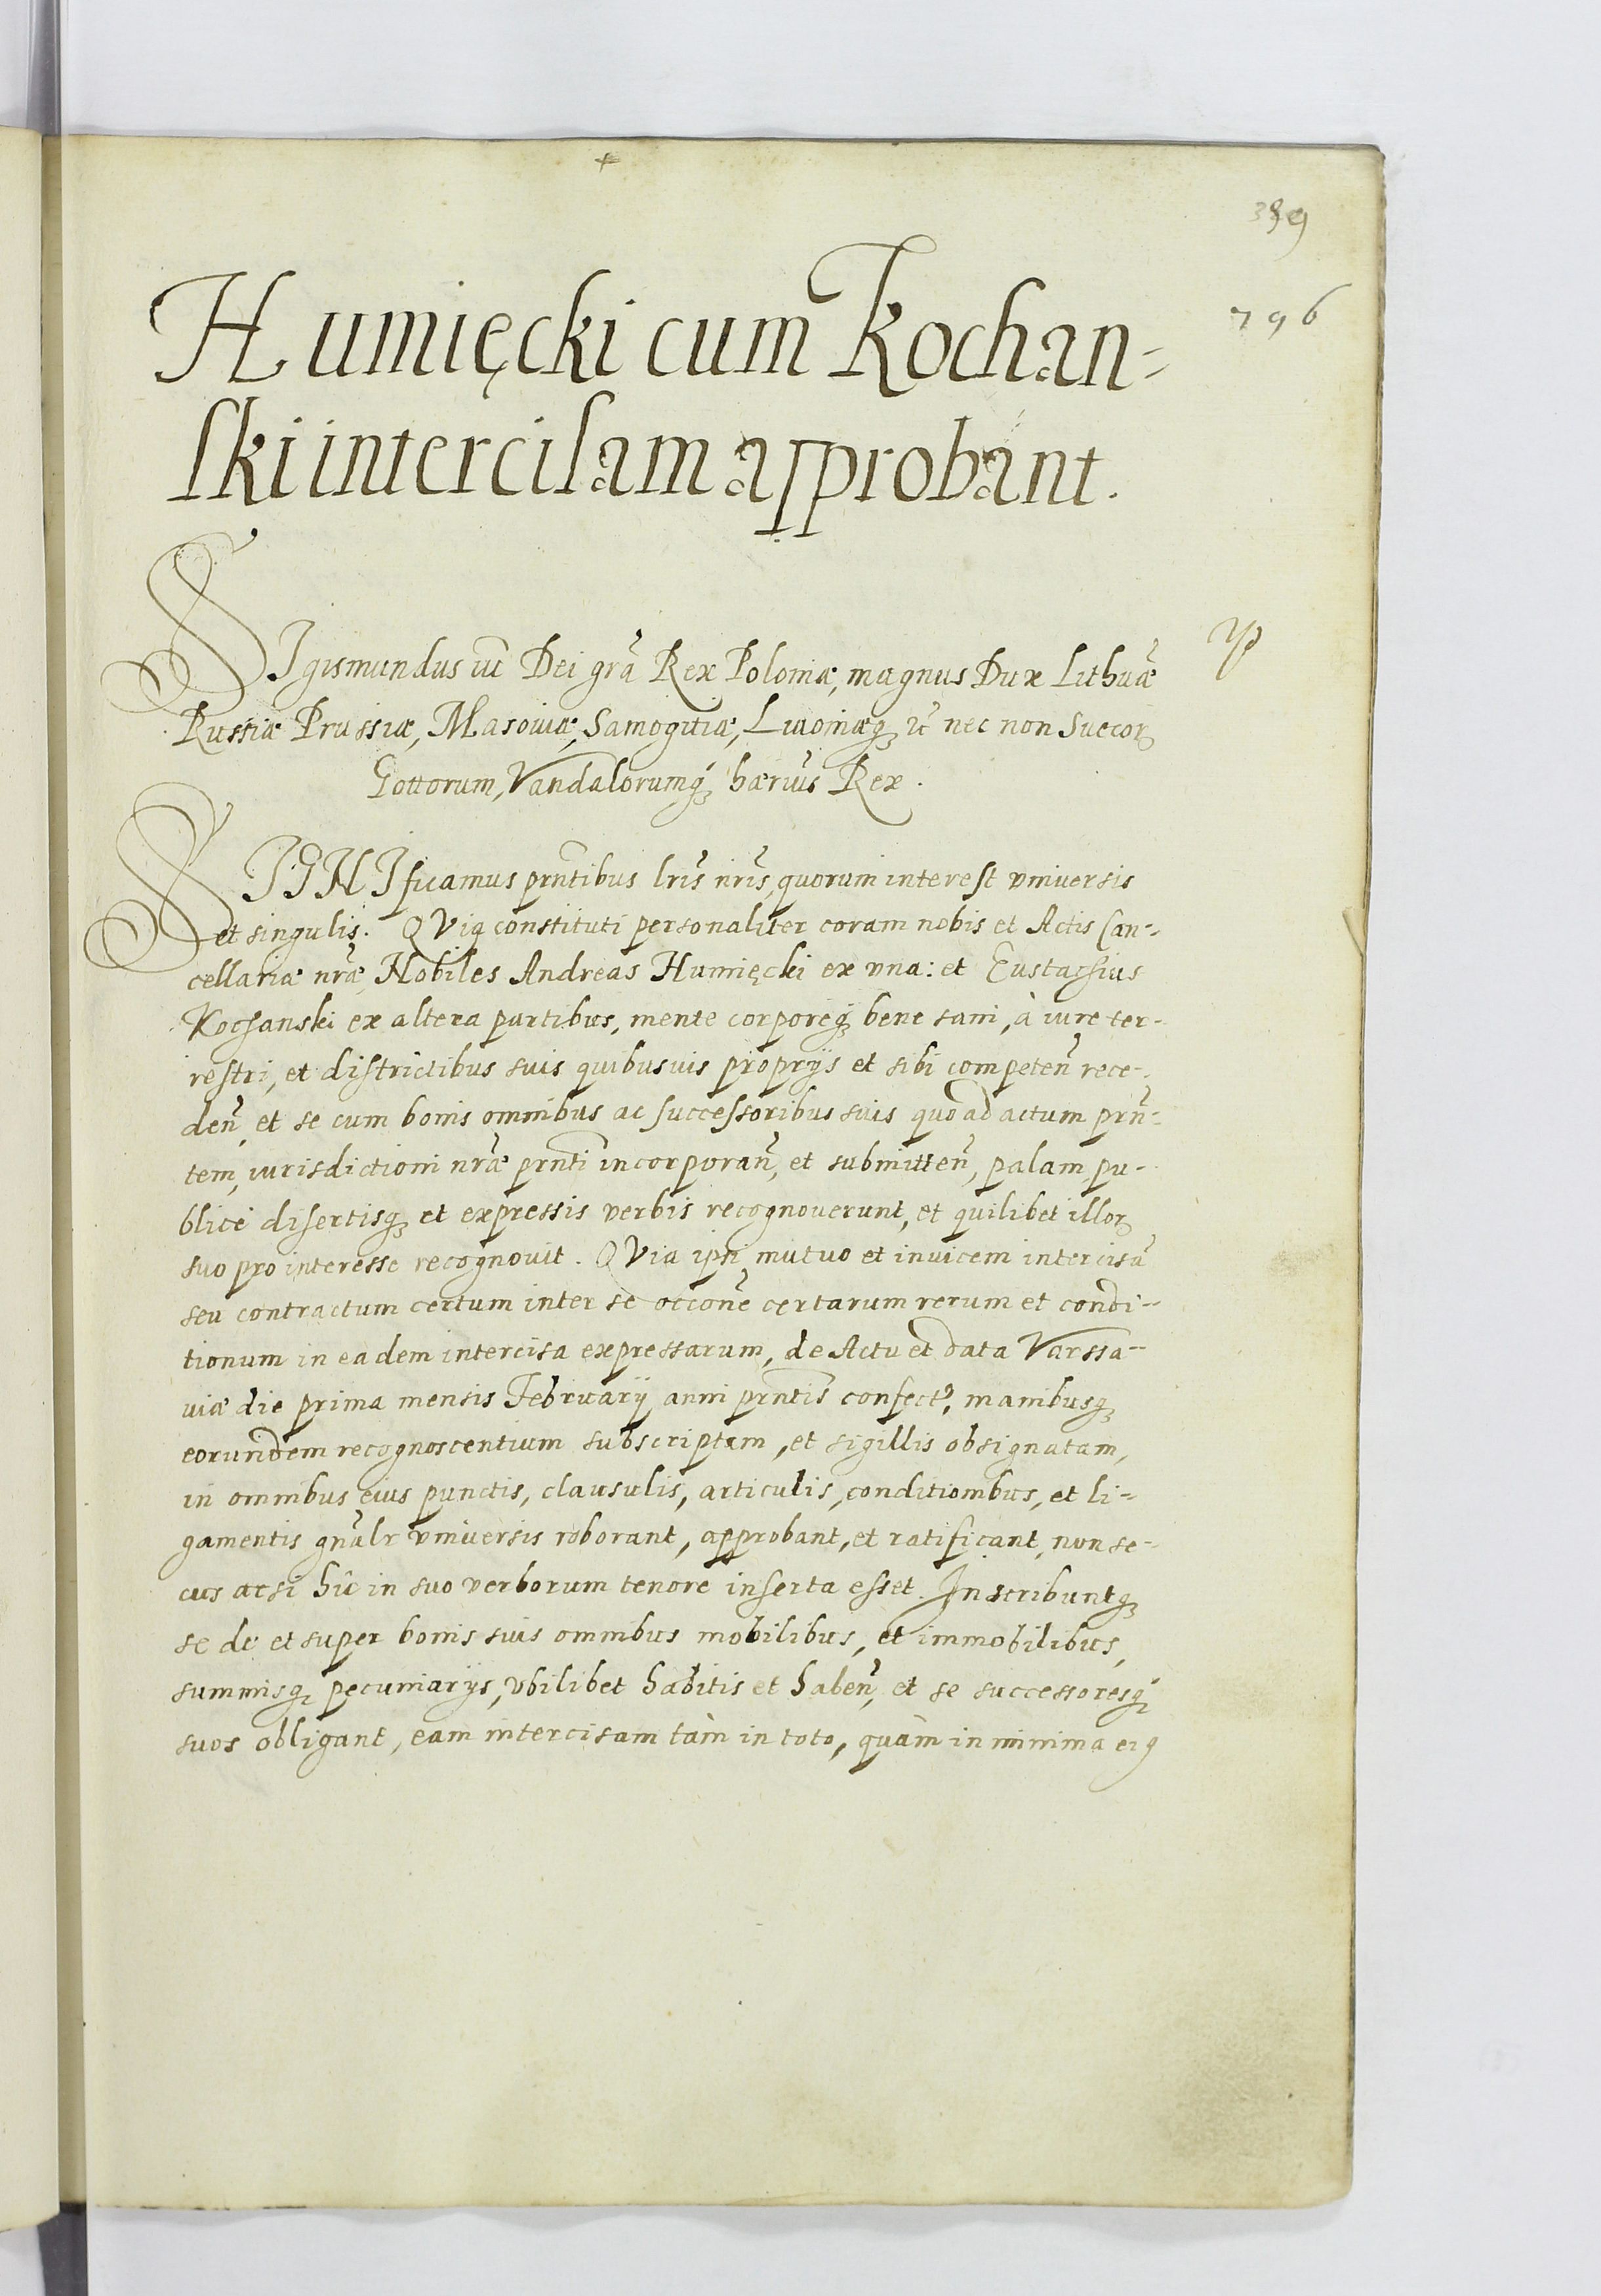 389
796
Humięcki cum Kochan-
ski intercisam approbant.
SIgismundus iii Dei grã Rex Poloniæ, magnus Dux Lithuãe
Russiæ Prussiæ, Masoviæ, Samogitiæ, Livoniæq; ić nec non Suecor
Gottorum, Vandalorumq; hæriũs Rex.
SIGNIficamus prñtibus lrĩs nrĩs, quorum interest vniuersis
et singulis. QVia constituti personaliter coram nobis et Actis Can-
cellariæ nrãe, Nobiles Andreas Humięcki ex vna: et Eustachius
Kochanski ex altera partibus, mente corporeq; bene sani, à iure ter-
restri, et districtibus suis quibusuis proprijs et sibi competeñ rece-
deñ, et se cum bonis omnibus ac successoribus suis quo ad actum prñ-
tem, iurisdictioni nrãe prñti incorporañ, et submitteñ, palam pu-
blicè disertisq; et expressis verbis recognouerunt, et quilibet illor
suo pro interesse recognouit. QVia ipsi mutuo et inuicem intercisã
seu contractum certum inter se occoñe certarum rerum et condi-
tionum in eadem intercisa expressarum, de Actu et data Varssa-
uiæ die prima mensis February anni prñtis confect, manibusq;
eorundem recognoscentium subscriptam, et sigillis obsignatam,
in omnibus eius punctis, clausulis, articulis, conditionibus, et li-
gamentis gñalr vniuersis roborant, approbant, et ratificant, non se-
cus ac si hîc in suo verborum tenore inserta esset. Inscribuntq;
se de et super bonis suis omnibus mobilibus, et immobilibus,
summisq; pecuniarijs, vbilibet habitis et habeñ, et se successoresq;
suos obligant, eam intercisam tàm in toto, quàm in minima ei9